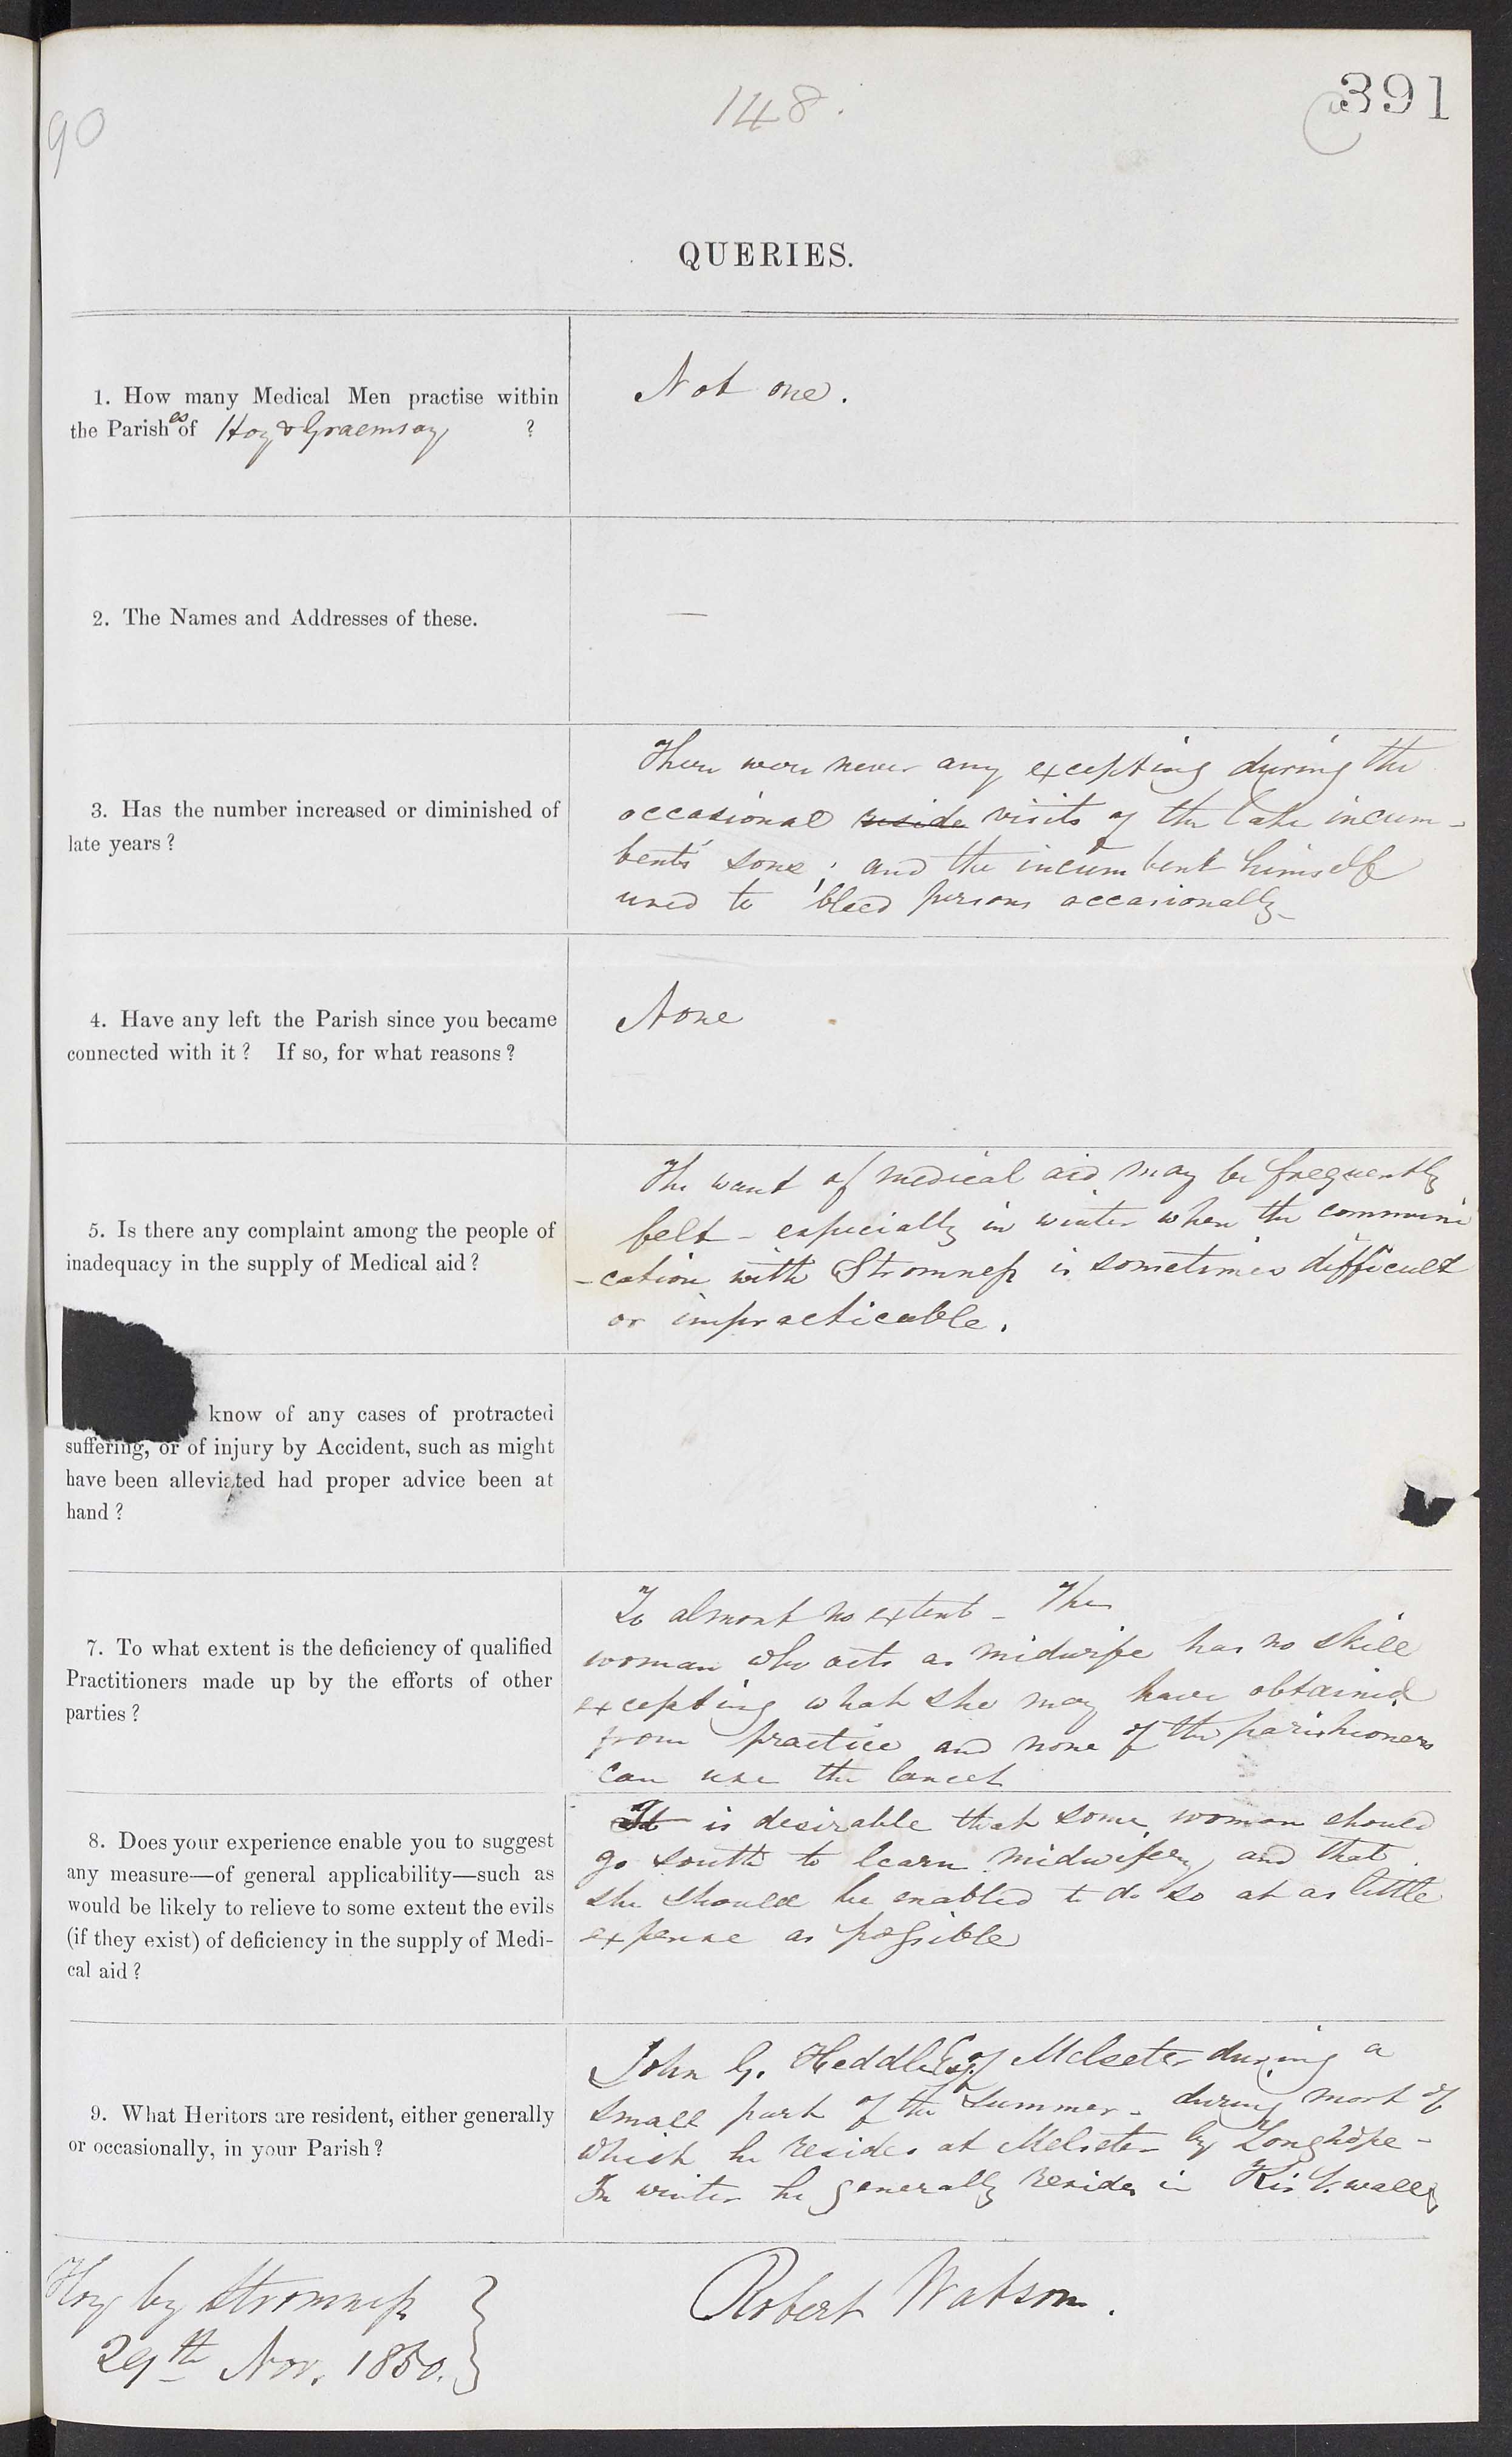 391
148.
90
QUERIES.
1. How many Medical Men practise within
the Parishes of Hoy & Graemsay ?
Not one.
2. The Names and Addresses of these.
—
3. Has the number increased or diminished of
late years?
There were never any excepting during the
occasional reside visits of the late incum-
bents' sons; and the incumbent himself
used to bleed persons occasionally-
4. Have any left the Parish since you became
connected with it? If so, for what reasons?
None
5. Is there any complaint among the people of
inadequacy in the supply of Medical aid?
The want of medical aid may be frequently
felt - especially in winter when the communi
-cation with Stromness is sometimes difficult
or impracticable.
know of any cases of protracted
suffering, or of injury by Accident, such as might
have been alleviated had proper advice been at
hand?
7. To what extent is the deficiency of qualified
Practitioners made up by the efforts of other
parties?
To almost no extent - The
woman who acts as midwife has no skill
excepting what she may have obtained
from practice and none of the parishioners
can use the lancet
8. Does your experience enable you to suggest
any measure—of general applicability—such as
would be likely to relieve to some extent the evils
(if they exist) of deficiency in the supply of Medi-
cal aid?
It is desirable that some woman should
go south to learn midwifery, and that
she should be enabled to do so at as little
expense as possible
9. What Heritors are resident, either generally
or occasionally, in your Parish?
John G. Heddle Esq. of Melseter during a
small part of the Summer - during most of
which he resides at Melseter by Longhope -
In winter he generally resides in Kirkwall
Hoy by Stromness
29th Nov. 1850.
Robert Watson.